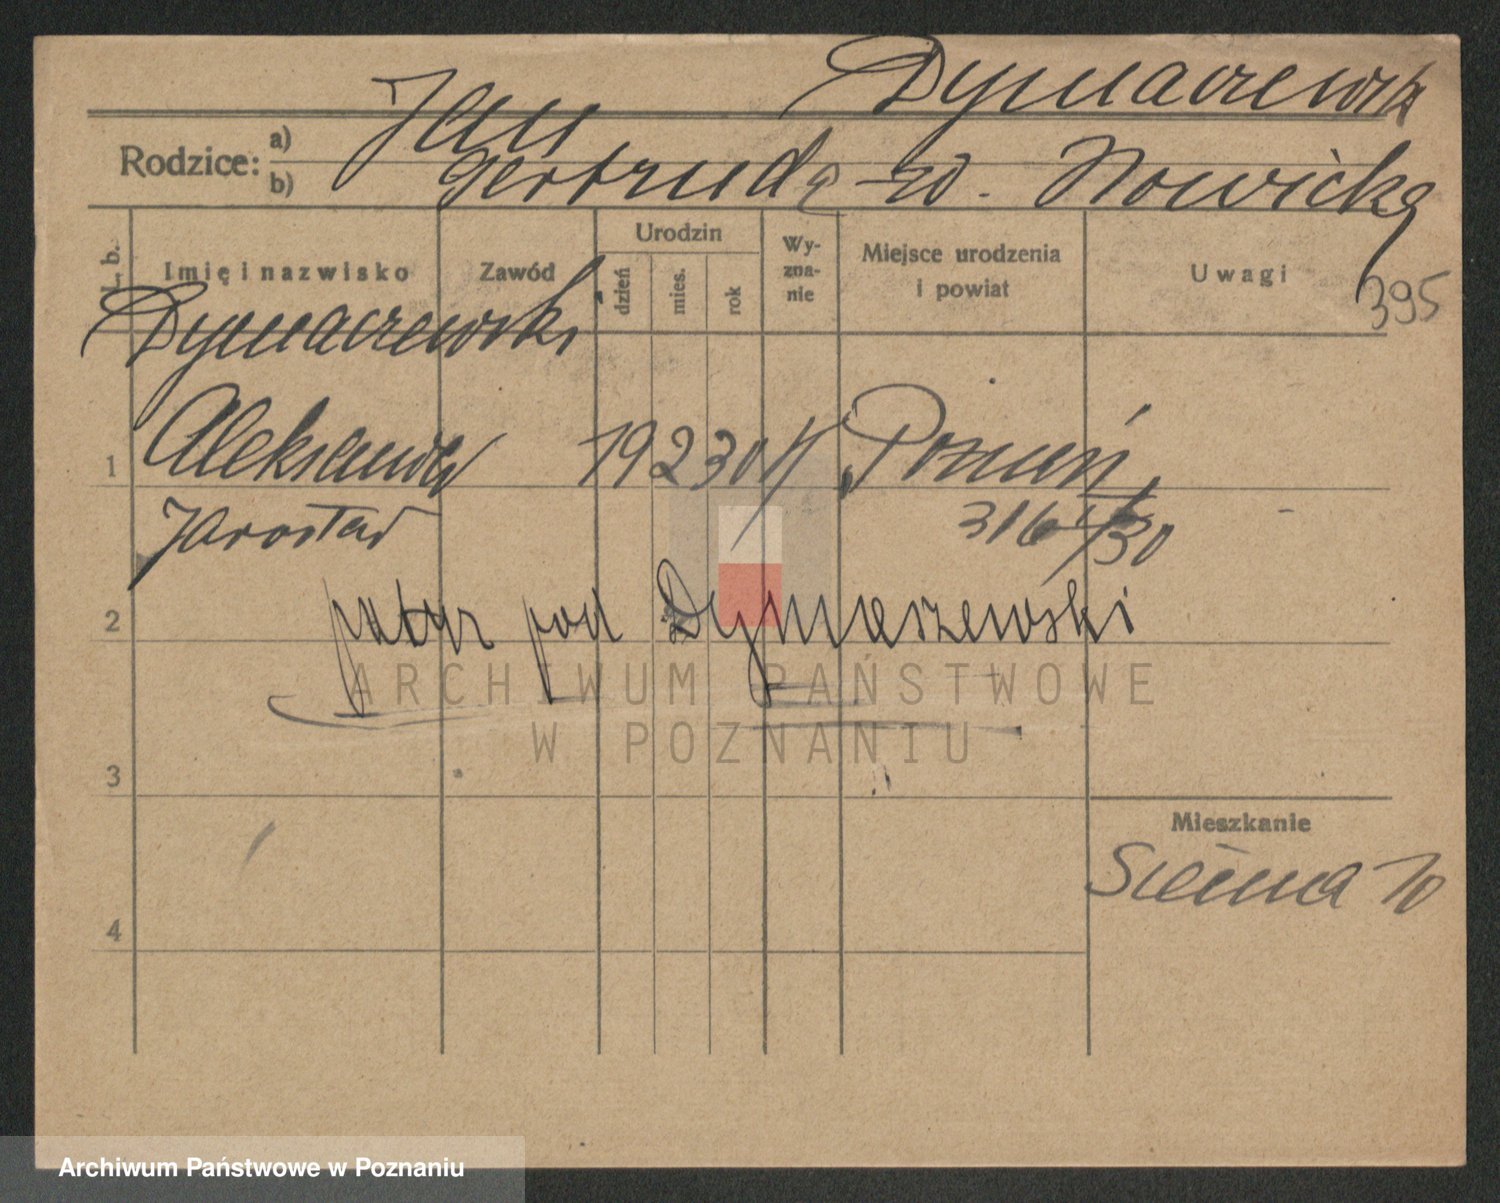 Dymaczewski
Rodzice: a) Jan
b) Gertruda z d. Nowicka
L. b. Imię i nazwisko Zawód Urodzin dzień mies. rok Wy-zna-nie Miejsce urodzenia i powiat Uwagi
395
Dymaczewski
1 Aleksander 19 2 30 Poznań
Jarosław 316 30
2 patrz pod Dymaszewski
ARCHIWUM PAŃSTWOWE
W POZNANIU
3
Mieszkanie
Sienna 10
4
Archiwum Państwowe w Poznaniu